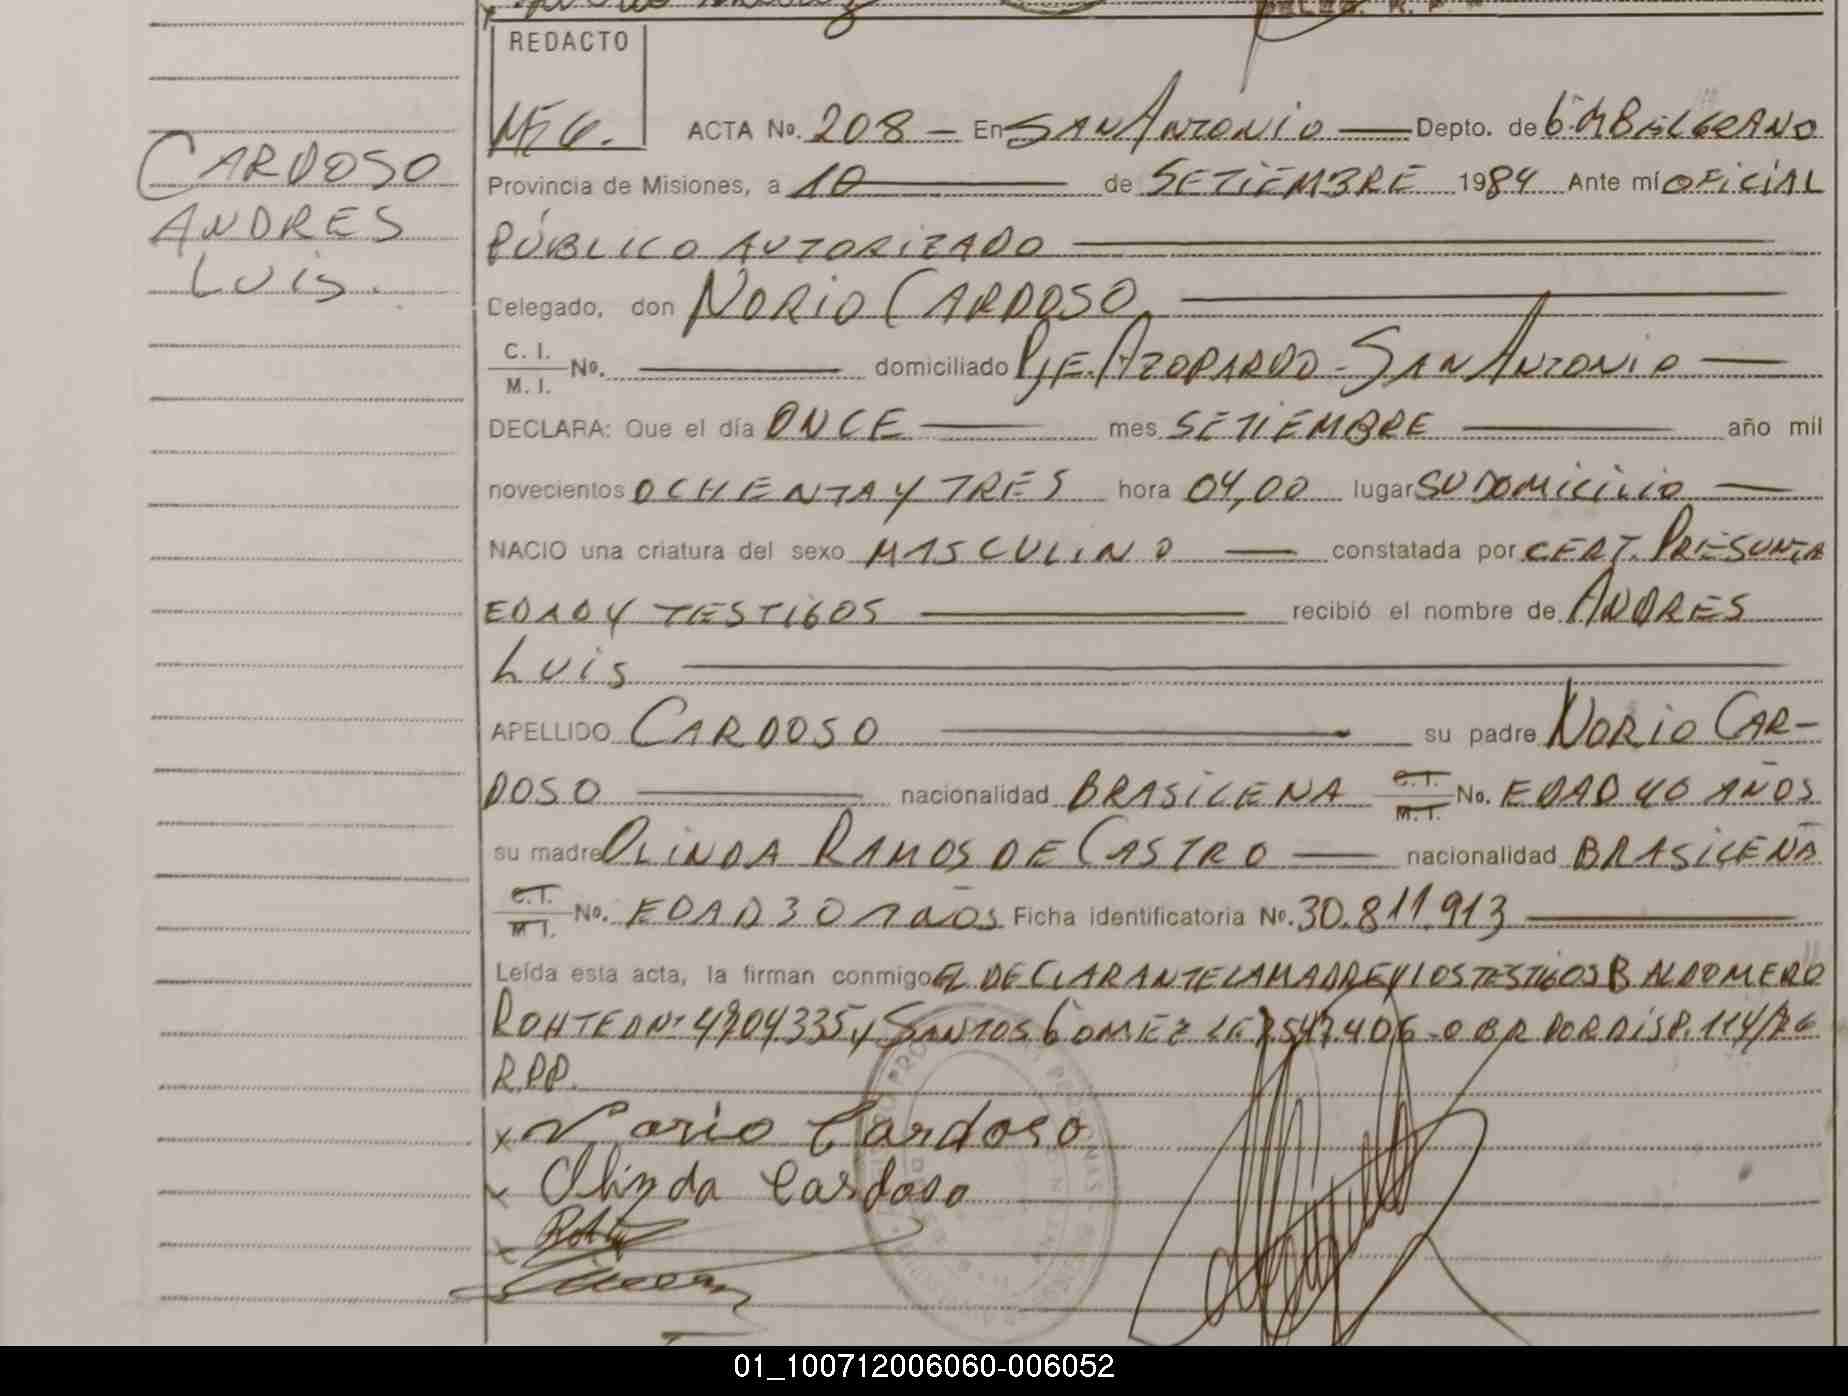 REDACTO
ACTA No. 208 — En SAN ANTONIO — Depto. de G. M. BELGRANO
Provincia de Misiones, a 10 — de SETIEMBRE 1984 Ante mí OFICIAL
PÚBLICO AUTORIZADO
Delegado, don NORIO CARDOSO
C. I.
M. I. No. — domiciliado PJE. AZOPARDO - SAN ANTONIO —
DECLARA: Que el día ONCE — mes SETIEMBRE — año mil
novecientos OCHENTA Y TRES hora 04,00 lugar SU DOMICILIO —
NACIO una criatura del sexo MASCULINO — constatada por CERT. PRESUNTA
EDAD Y TESTIGOS — recibió el nombre de ANDRES
LUIS
APELLIDO CARDOSO — su padre NORIO CAR-
DOSO — nacionalidad BRASILEÑA C.I. M.I. No. EDAD 40 AÑOS
su madre OLINDA RAMOS DE CASTRO — nacionalidad BRASILEÑA
C.I. M.I. No. EDAD 30 AÑOS Ficha identificatoria No. 30.811.913
Leída esta acta, la firman conmigo EL DECLARANTE LA MADRE Y LOS TESTIGOS BALDOMERO
ROHTE DNI 4904335 y SANTOS GOMEZ LE 7.547.406 - O BR POR DISP. 114/76
R.P.P.
x Norio Cardoso
x Olinda Cardoso
CARDOSO
ANDRES
LUIS.
01_100712006060-006052